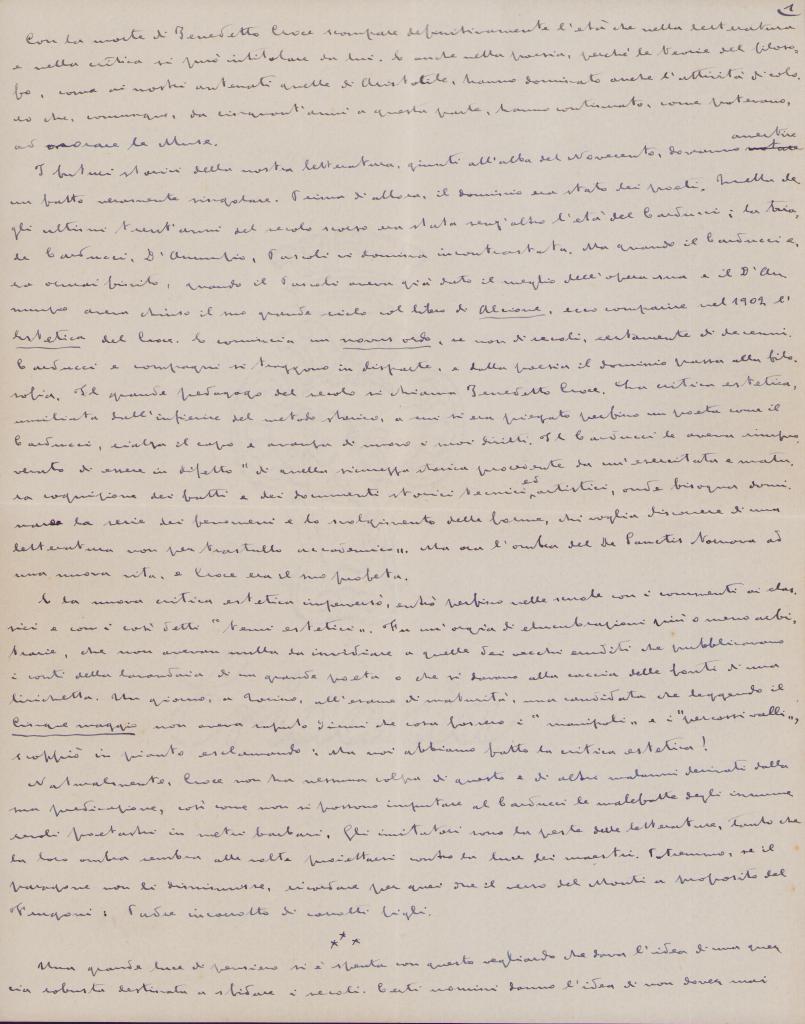 1
Con la morte di Benedetto Croce scompare definitivamente l'età che nella letteratura
e nella critica si può intitolare da lui. E anche nella poesia, perché le teorie del filoso-
fo, come ai nostri antenati quelle di Aristotele, hanno dominato anche l'attività di colo-
ro che, comunque, da cinquant'anni a questa parte, hanno continuato, come potevano,
ad onorare le Muse.
avvertire
I futuri storici della nostra letteratura, giunti all'alba del Novecento, dovranno notare
un fatto veramente singolare. Prima di allora, il dominio era stato dei poeti. Quella de-
gli ultimi trent'anni del secolo scorso era stata senz'altro l'età del Carducci; la tria-
de Carducci, D'Annunzio, Pascoli vi domina incontrastata. Ma quando il Carducci e-
ra ormai finito, quando il Pascoli aveva già dato il meglio dell'opera sua e il D'An-
nunzio aveva chiuso il suo grande ciclo col libro di Alcione, ecco comparire nel 1902 l'
Estetica del Croce. E comincia un novus ordo, se non di secoli, certamente di decenni.
Carducci e compagni si traggono in disparte, e dalla poesia il dominio passa alla filo-
sofia. Il grande pedagogo del secolo si chiama Benedetto Croce. La critica estetica,
umiliata dall'infierire del metodo storico, a cui si era piegato perfino un poeta come il
Carducci, rialza il capo e avanza di nuovo i suoi diritti. Il Carducci le aveva rimpro-
verato di essere in difetto "di quella sicurezza storica procedente da un'esercitata e matu-
ra cognizione dei fatti e dei documenti storici tecnici ed artistici, onde bisogna domi-
nare la serie dei fenomeni e lo svolgimento delle forme, chi voglia discorrere di una
letteratura non per trastullo accademico". Ma ora l'ombra del De Sanctis tornava ad
una nuova vita, e Croce era il suo profeta.
E la nuova critica estetica imperversò, entrò perfino nelle scuole con i commenti ai clas-
sici e con i così detti "temi estetici". Fu un'orgia di elucubrazioni più o meno arbi-
trarie, che non avevan nulla da invidiare a quelle dei vecchi eruditi che pubblicavano
i conti della lavandaia di un grande poeta o che si davano alla caccia delle fonti di una
lirichetta. Un giorno, a Torino, all'esame di maturità, una candidata che leggendo il
Cinque maggio non aveva saputo dirmi che cosa fossero i "manipoli" e i "percossi valli",
scoppiò in pianto esclamando: Ma noi abbiamo fatto la critica estetica!
Naturalmente, Croce non ha nessuna colpa di questo e di altri malanni derivati dalla
sua predicazione, così come non si possono imputare al Carducci le malefatte degli innume-
revoli poetastri in metri barbari. Gli imitatori sono la peste delle letterature, tanto che
la loro ombra sembra alle volte proiettarsi contro la luce dei maestri. Potremmo, se il
paragone non li diminuisse, ricordare per quei due il verso del Monti a proposito del
Frugoni: Padre incorrotto di corrotti figli.
***
Una grande luce di pensiero si è spenta con questo vegliardo che dava l'idea di una quer-
cia robusta destinata a sfidare i secoli. Certi uomini danno l'idea di non dover mai